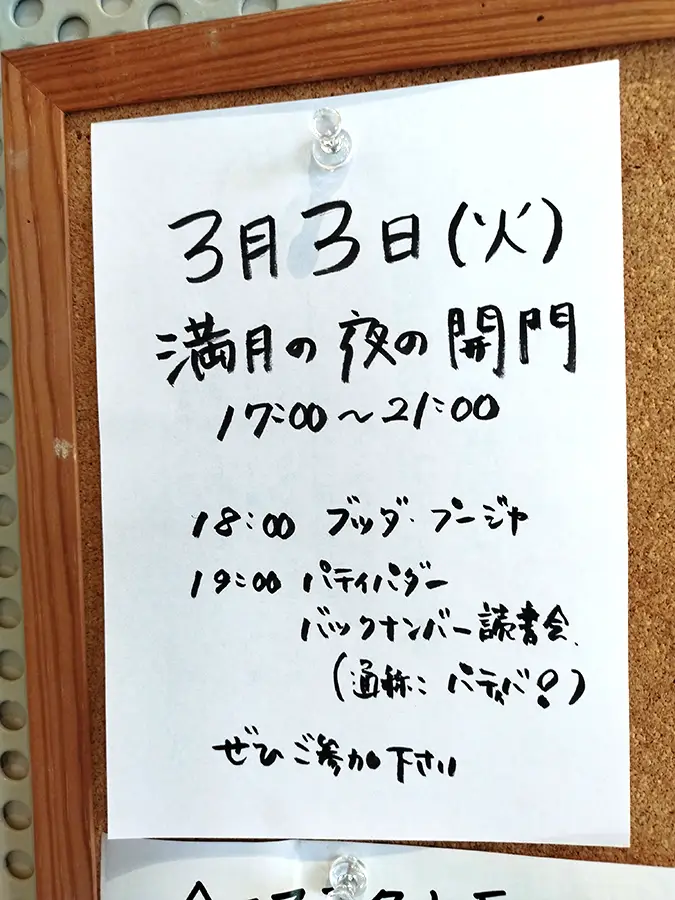 3月3日(火)
満月の夜の開門
17:00〜21:00
18:00 ブッダ・プージャ
19:00 パティパダー
バックナンバー読書会、
(通称: パティバ!)
ぜひご参加下さい